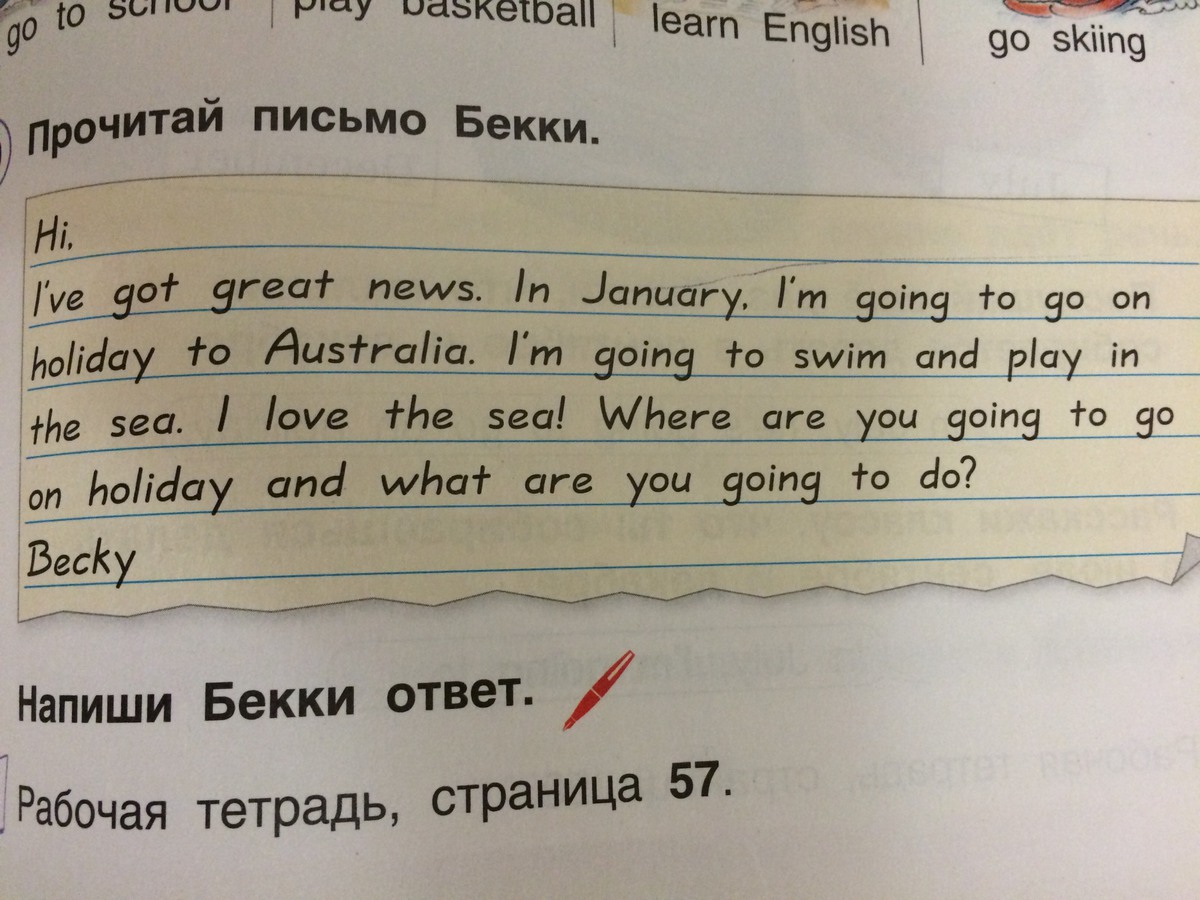 go to school play basketball learn English go skiing
Прочитай письмо Бекки.
Hi,
I've got great news. In January, I'm going to go on
holiday to Australia. I'm going to swim and play in
the sea. I love the sea! Where are you going to go
on holiday and what are you going to do?
Becky
Напиши Бекки ответ.
Рабочая тетрадь, страница 57.